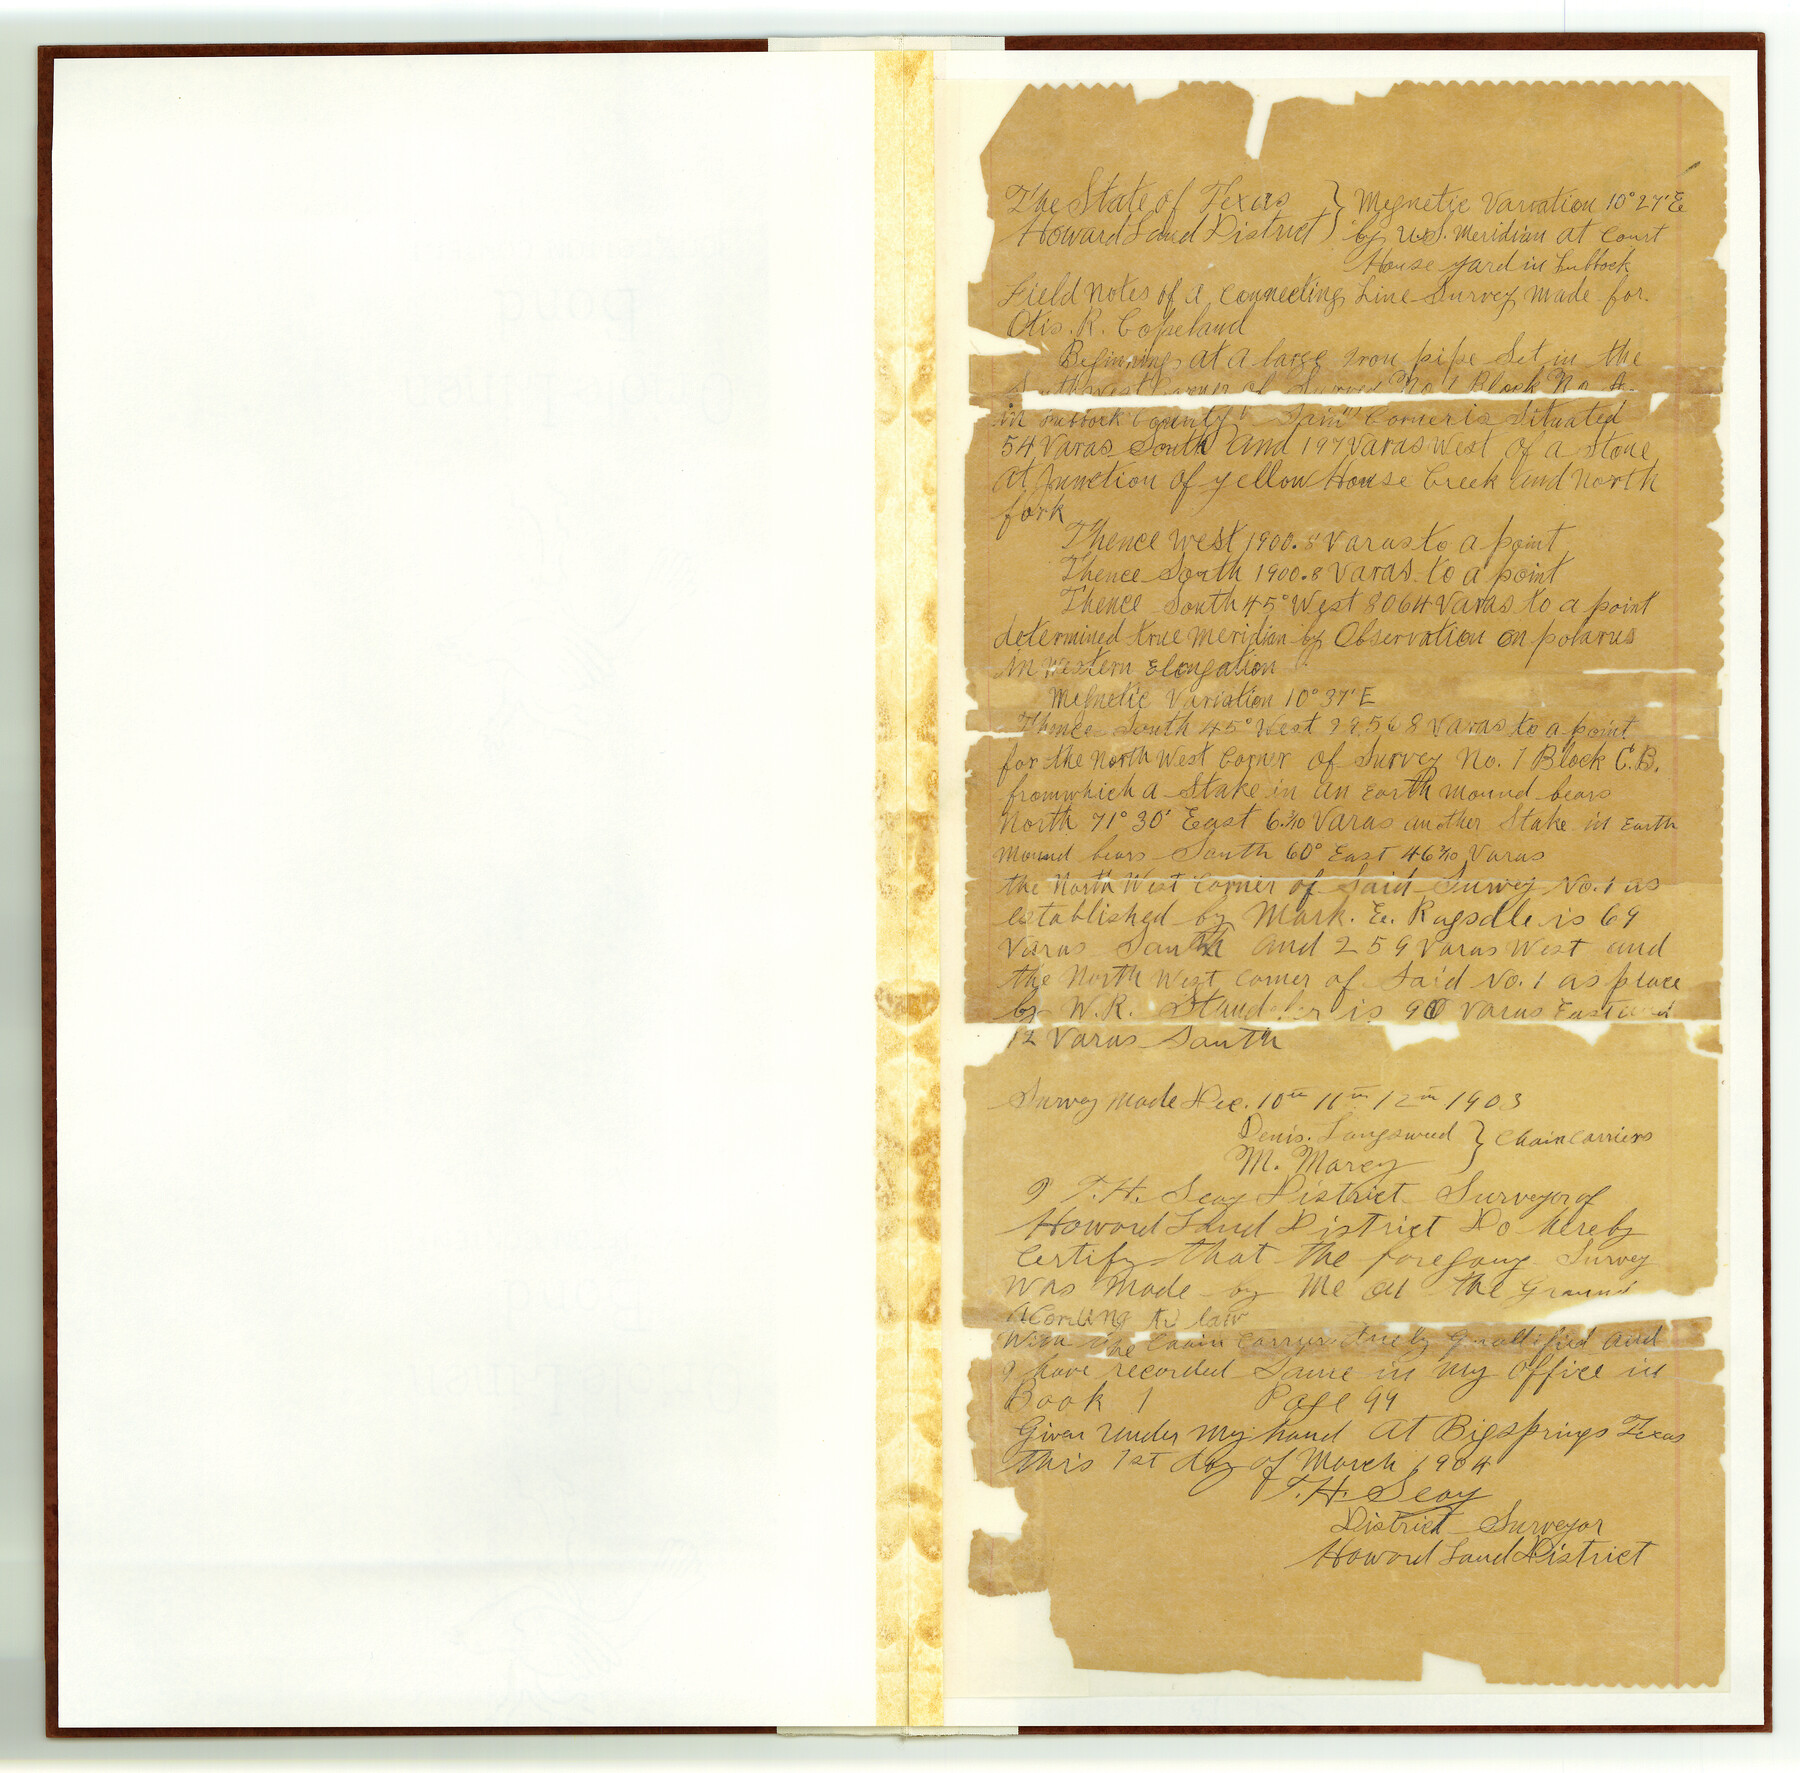 The State of Texas } Magnetic Variation 10° 27' E
Howard Land District } by U.S. Meridian at Court
House yard in Lubbock
Field notes of a connecting Line Survey made for
Otis. R. Copeland
Beginning at a large Iron pipe Set in the
Southwest Corner of Survey No 1 Block No A
in Lubbock County Said Corner is Situated
54 Varas South and 197 Varas West of a Stone
at Junction of Yellow House Creek and North
fork
Thence West 1900.8 Varas to a point
Thence South 1900.8 Varas to a point
Thence South 45° West 8064 Varas to a point
determined true meridian by Observation on polarus
in Western Elongation
Magnetic Variation 10° 37' E
Thence South 45° West Varas to a point
for the North West Corner of Survey No. 1 Block C.B.
from which a Stake in an Earth mound bears
North 71° 30' East Varas another Stake in Earth
Mound bears South 60° East Varas
the North West Corner of Said Survey No. 1 as
established by Mark. E. Ragsdle is 69
Varas South and 259 Varas West and
the North West Corner of Said No. 1 as place
by W.R. is 90 Varas East and
12 Varas South
Survey made Dec. 10th 11th 12th 1903
Denis. } Chain Carriers
M. Marcy
I T.H. Seay District Surveyor of
Howard Land District Do hereby
Certify that the foregoing Survey
Was Made by Me on the Ground
Acording to law
With the Chain Carriers duely quallified and
I have recorded Same in my Office in
Book 1 Page 99
Given Under My hand At Bigsprings Texas
this 1st day of March 1904
T.H. Seay
District Surveyor
Howard Land District